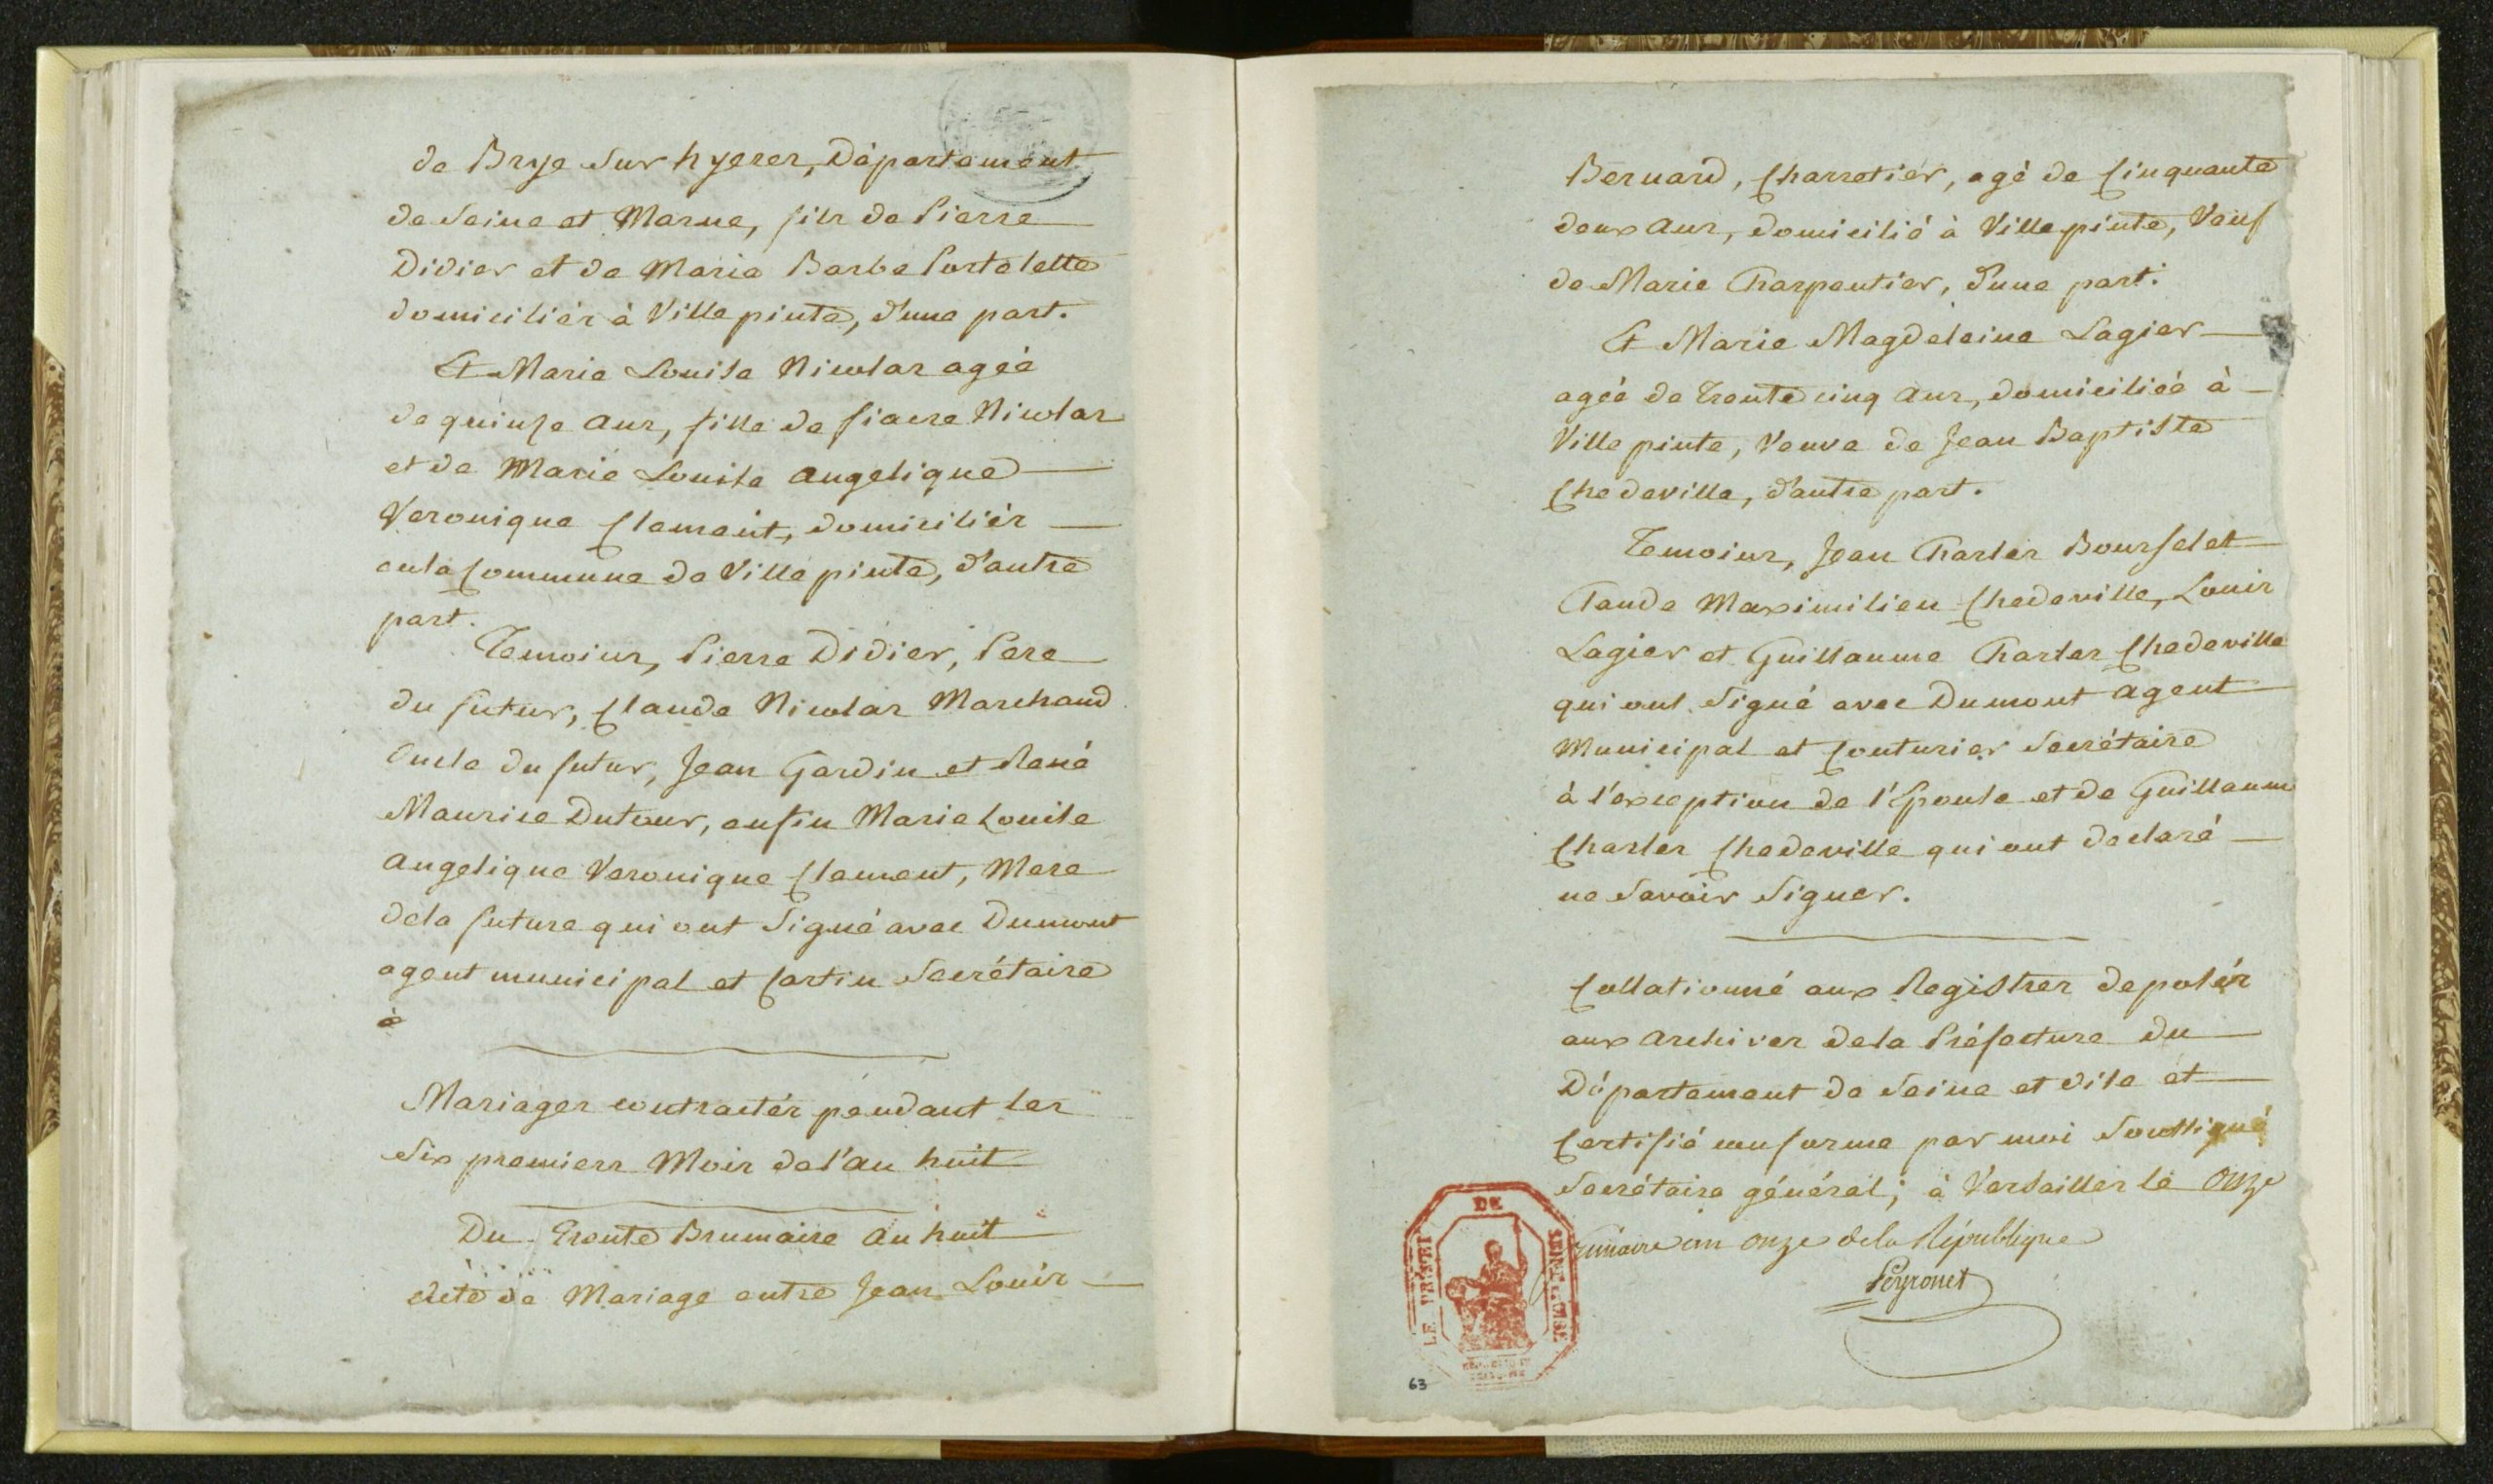 de Brye sur hyeres, Département
de Seine et Marne, fils de Pierre
Didier et de Marie Barbe Portelette
domiciliés à Villepinte, d'une part.
Et Marie Louise Nicolas agée
de quinze ans, fille de fiacre Nicolas
et de Marie Louise angelique
Veronique Clement, domiciliés
en la Commune de Villepinte, d'autre
part.
Temoins, Pierre Didier, Pere
du futur, Claude Nicolas Marchand
Oncle du futur, Jean Gardin et René
Maurice Dutour, enfin Marie Louise
angelique Veronique Clement, Mere
de la future qui ont signé avec Dumont
agent municipal et Cartin Secrétaire
Mariages contractés pendant les
six premiers Mois de l'an huit
Du trente Brumaire an huit
Acte de Mariage entre Jean Louis
Bernard, Charretier, agé de Cinquante
deux ans, domicilié à Villepinte, Veuf
de Marie Charpentier, d'une part.
Et Marie Magdeleine Lagier
agée de trente cinq ans, domiciliée à
Villepinte, Veuve de Jean Baptiste
Chedeville, d'autre part.
Temoins, Jean Charles Bourselet
Claude Maximilien Chedeville, Louis
Lagier et Guillaume Charles Chedeville
qui ont signé avec Dumont agent
Municipal et Couturier Secrétaire
à l'exception de l'Epouse et de Guillaume
Charles Chedeville qui ont declaré
ne Savoir Signer.
Collationné aux Registres deposés
aux archives de la Préfecture du
Département de Seine et Oise et
Certifié conforme par moi Soussigné
Secrétaire général; à Versailles le onze
frimaire an onze de la République
Peyronet
LE PREFET
DE
SEINE ET OISE
63